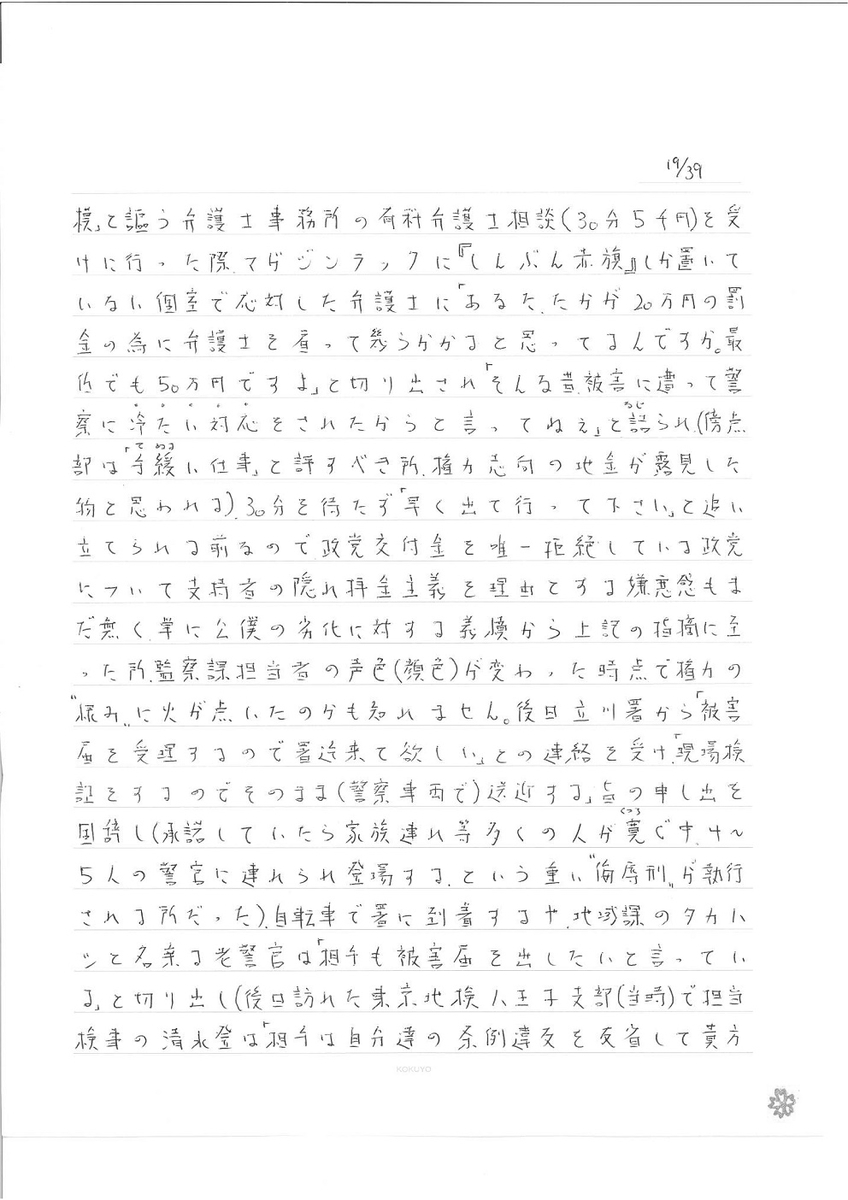 19/39
模」と謳う弁護士事務所の有料弁護士相談(30分5千円)を受
けに行った際、マガジンラックに『しんぶん赤旗』しか置いて
いない個室で応対した弁護士に「あなた、たかが20万円の罰
金の為に弁護士を雇って幾らかかると思ってるんですか。最
低でも50万円ですよ」と切り出され「そんな昔、被害に遭って警
察に冷たい対応をされたからと言ってねえ」と詰られ(傍点
なじ
部は「手緩い仕事」と評すべき所、権力志向の地金が露見した
て ぬる
物と思われる)、30分を待たず「早く出て行って下さい」と追い
立てられる前なので政党交付金を唯一拒絶している政党
について支持者の隠れ拝金主義を理由とする嫌悪感もま
だ無く単に公僕の劣化に対する義憤から上記の指摘に至
った所、監察課担当者の声色(顔色)が変わった時点で権力の
〝恨み〟に火が点いたのかも知れません。後日立川署から「被害
届を受理するので署迄来て欲しい」との連絡を受け、「現場検
証をするのでそのまま(警察車両で)送迎する」旨の申し出を
固辞し(承諾していたら家族連れ等多くの人が寛ぐ中、4〜
くつろ
5人の警官に連れられ登場する、という重い〝侮辱刑〟が執行
される所だった)、自転車で署に到着するや、地域課のタカハ
シと名乗る老警官は「相手も被害届を出したいと言ってい
る」と切り出し(後日訪れた東京地検八王子支部(当時)で担当
検事の清水登は「相手は自分達の条例違反を反省して貴方
KOKUYO